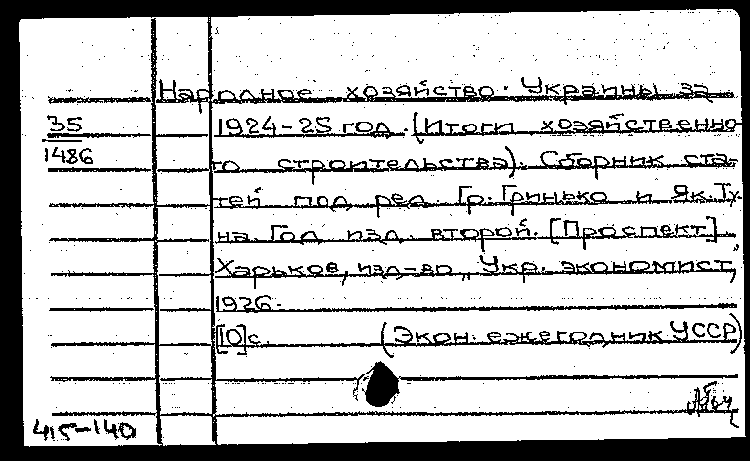 Народное хозяйство Украины за
35
1486
1924-25 год. (Итоги хозяйственно-
го строительства). Сборник ста-
тей под ред. Гр. Гринько и Як. Ту-
на. Год изд. второй. [Проспект]
Харьков, изд-во „Укр. экономист,"
1926.
[10]с. (Экон. ежегодник УССР)
415-140